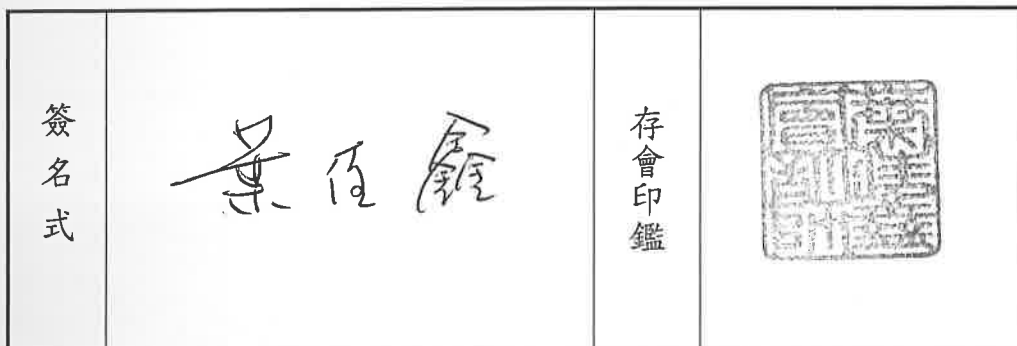 簽名式
葉佰鑫
存會印鑑